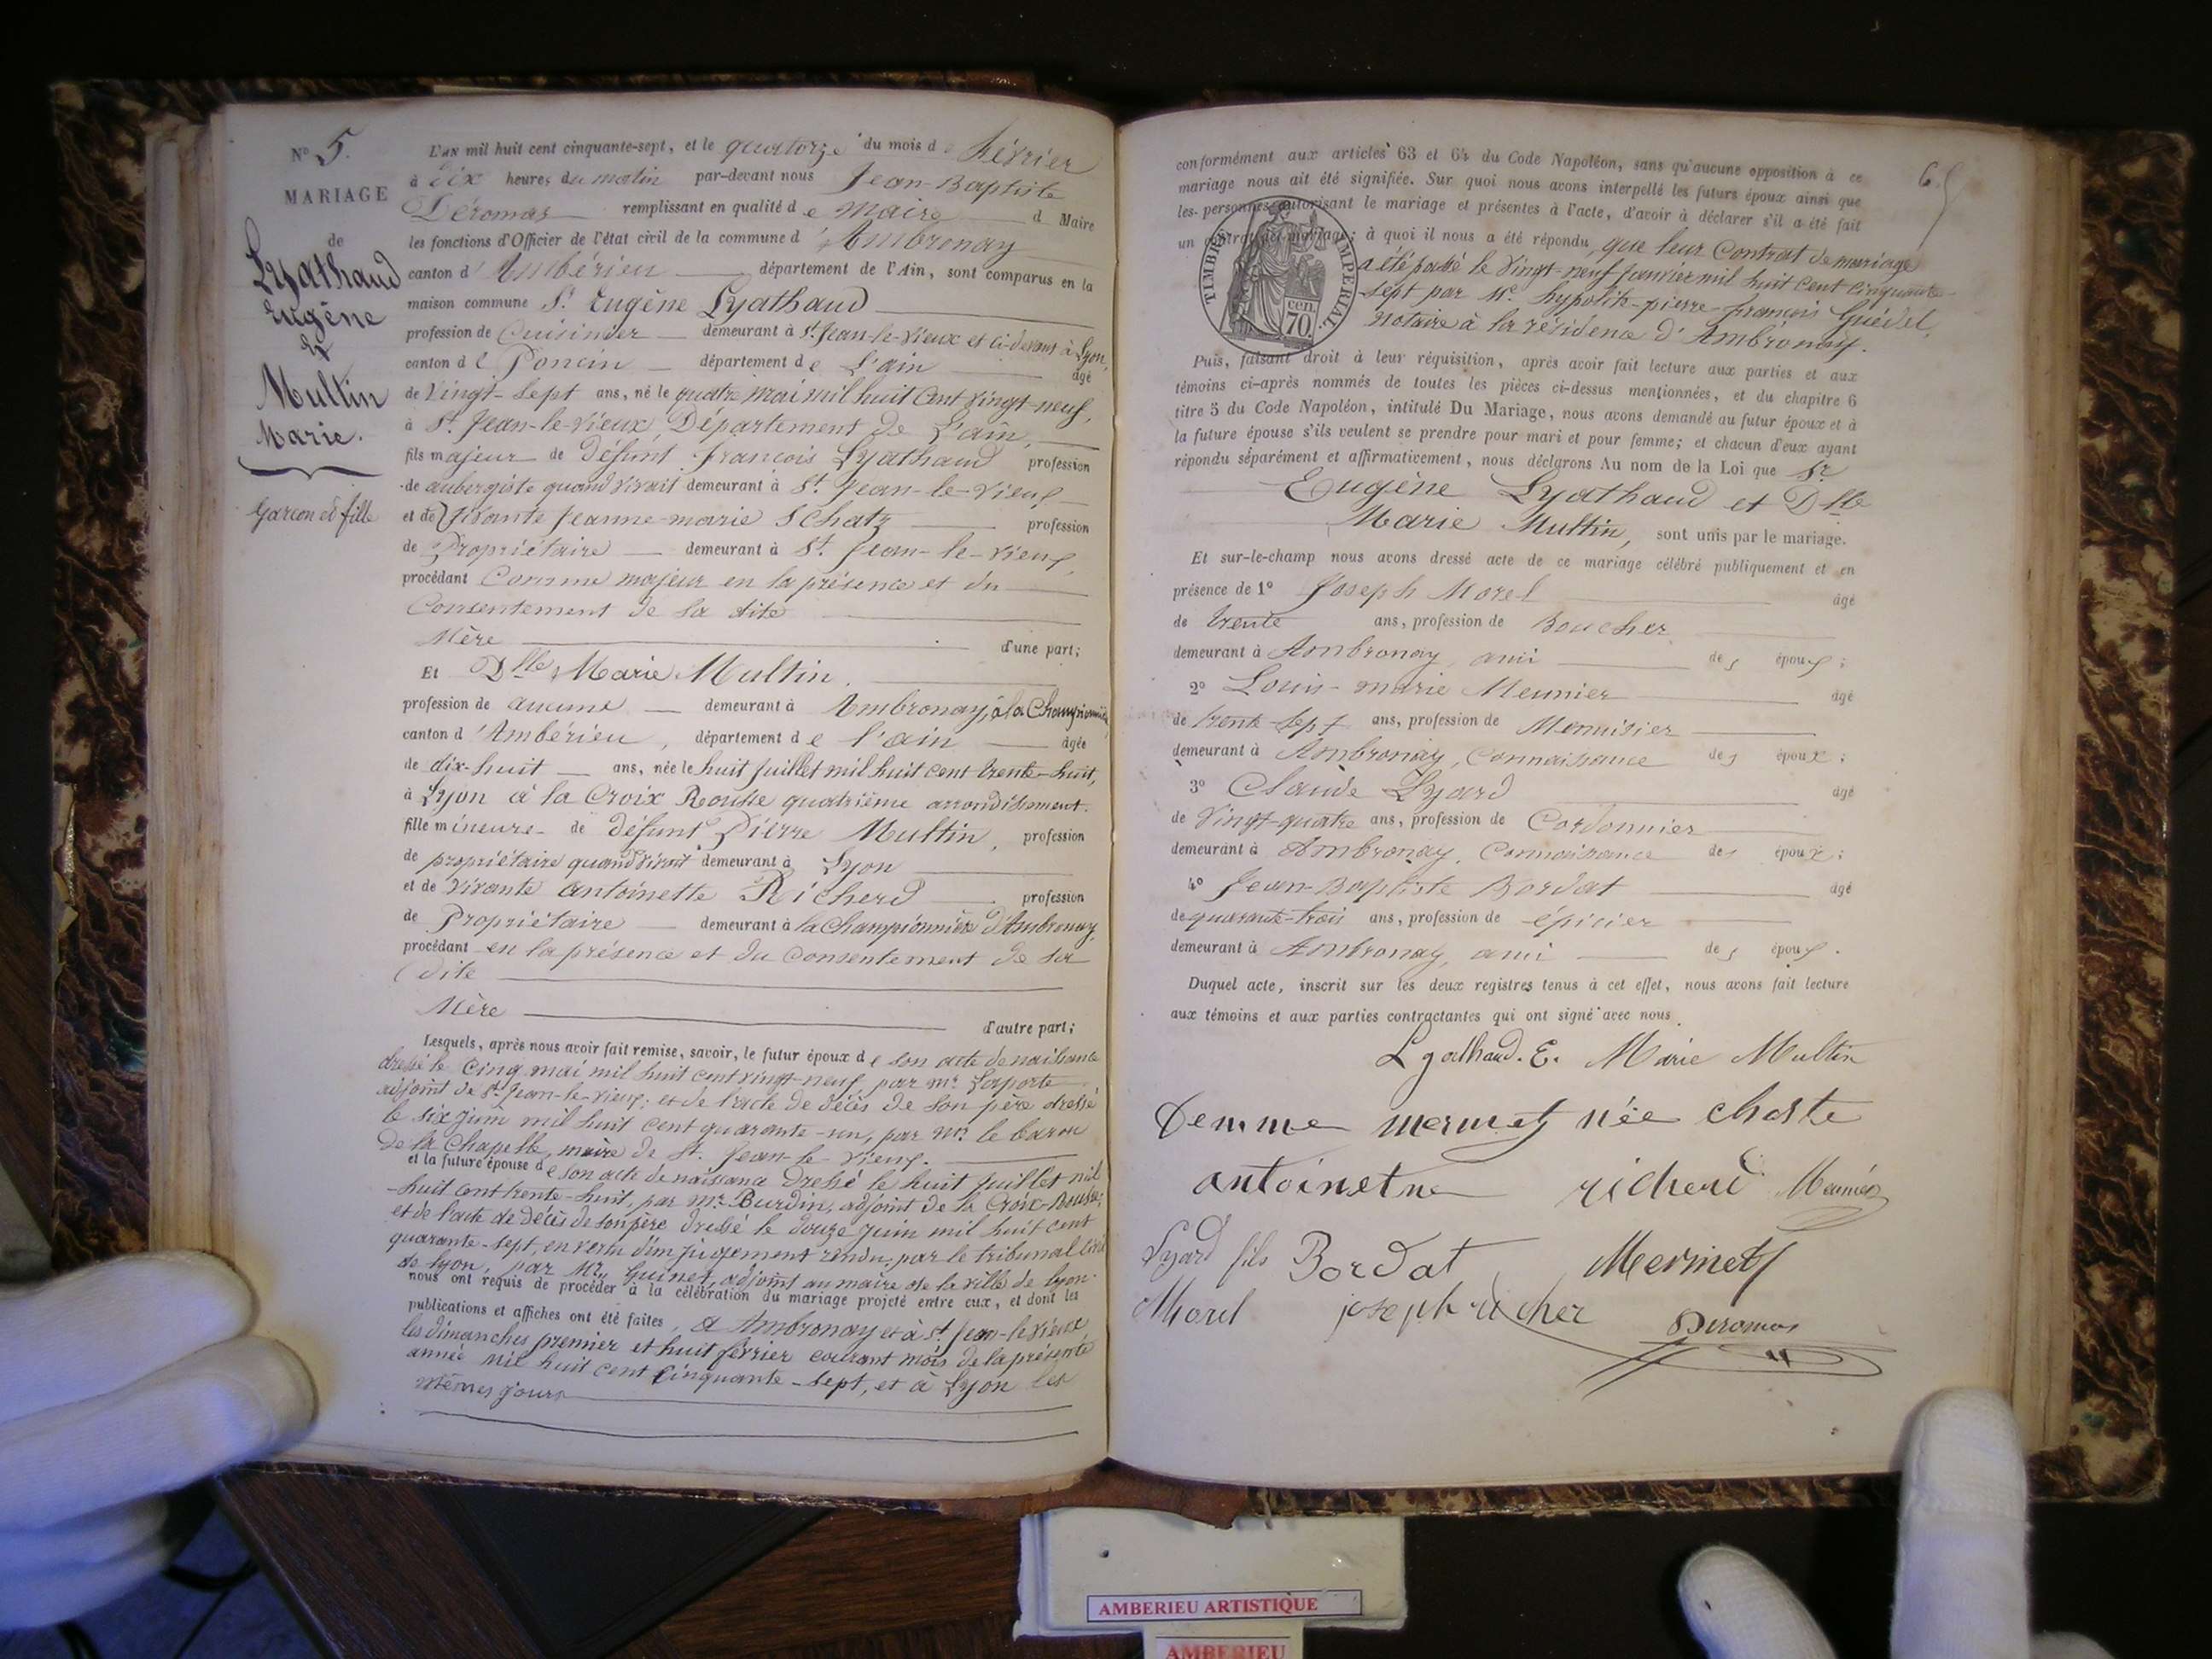 N° 5.
MARIAGE
de
Lyathaud
Eugène
et
Multin
Marie.
Garcon et fille
L'AN mil huit cent cinquante-sept, et le quatorze du mois de Février
à dix heures du matin par-devant nous Jean-Baptiste
Déromas remplissant en qualité de Maire d Maire
les fonctions d'Officier de l'état civil de la commune d'Ambronay
canton d'Ambérieu département de l'Ain, sont comparus en la
maison commune Sr Eugène Lyathaud
profession de Cuisinier demeurant à St Jean-le-vieux et ci-devant à Lyon,
canton de Poncin département de l'ain âgé
de Vingt-Sept ans, né le quatre mai mil huit Cent vingt-neuf,
à St. Jean-le-vieux, Département de L'ain,
fils majeur de Défunt françois Lyathaud profession
de aubergiste quand vivait demeurant à St. Jean-le-vieux
et de vivante Jeanne-marie Schatz profession
de Propriétaire demeurant à St. Jean-le-vieux,
procédant Comme majeur en la présence et du
Consentement de sa dite
Mère d'une part;
Et Dlle Marie Multin.
profession de aucune demeurant à Ambronay, à la Championnière,
canton d'Ambérieu, département de l'ain âgée
de dix-huit ans, née le huit Juillet mil huit cent trente-huit,
à Lyon à la Croix Rousse quatrième arrondissement.
fille mineure de défunt Pierre Multin, profession
de propriétaire quand vivait demeurant à Lyon
et de vivante antoinette Richerd profession
de Propriétaire demeurant à la Championnière d'Ambronay,
procédant en la présence et du Consentement de sa
dite
Mère d'autre part;
Lesquels, après nous avoir fait remise, savoir, le futur époux de son acte de naissance
dressé le Cinq mai mil huit cent vingt-neuf, par mr. Laporte
adjoint de St. Jean-le-vieux; et de l'acte de décès de son père dressé
le six Juin mil huit cent quarante-un, par mr. le baron
de la Chapelle, maire de St. Jean-le-vieux.
et la future épouse de son acte de naissance dressé le huit Juillet mil
huit cent trente-huit, par mr. Burdin, adjoint de la Croix-Rousse;
et de l'acte de décès de son père dressé le douze Juin mil huit cent
quarante-sept, en vertu d'un jugement rendu, par le tribunal civil
de Lyon, par Mr. Guinet, adjoint au maire de la ville de Lyon.
nous ont requis de procéder à la célébration du mariage projeté entre eux, et dont les
publications et affiches ont été faites, à Ambronay et à St. Jean-le-vieux
les dimanches premier et huit février courant mois de la présente
année mil huit cent Cinquante-sept, et à Lyon les
mêmes jours
conformément aux articles 63 et 64 du Code Napoléon, sans qu'aucune opposition à ce
mariage nous ait été signifiée. Sur quoi nous avons interpellé les futurs époux ainsi que
les personnes autorisant le mariage et présentes à l'acte, d'avoir à déclarer s'il a été fait
un contrat de mariage; à quoi il nous a été répondu, que leur Contrat de mariage
a été passé le Vingt-neuf Janvier mil huit cent cinquante-
sept par Me. hypolite-pierre-françois Guédel,
Notaire à la résidence d'Ambronay.
TIMBRE IMPERIAL
70 cen
Puis, faisant droit à leur réquisition, après avoir fait lecture aux parties et aux
témoins ci-après nommés de toutes les pièces ci-dessus mentionnées, et du chapitre 6
titre 5 du Code Napoléon, intitulé Du Mariage, nous avons demandé au futur époux et à
la future épouse s'ils veulent se prendre pour mari et pour femme; et chacun d'eux ayant
répondu séparément et affirmativement, nous déclarons Au nom de la Loi que Sr
Eugène Lyathaud et Dlle
Marie Multin, sont unis par le mariage.
Et sur-le-champ nous avons dressé acte de ce mariage célébré publiquement et en
présence de 1° Joseph Morel âgé
de trente ans, profession de Boucher
demeurant à Ambronay, ami des époux;
2° Louis-marie Meunier âgé
de trente-sept ans, profession de Menuisier
demeurant à Ambronay, Connaissance des époux;
3° Claude Lyard âgé
de Vingt-quatre ans, profession de Cordonnier
demeurant à Ambronay, Connaissance des époux;
4° Jean-Baptiste Bordat âgé
de quarante-trois ans, profession de épicier
demeurant à Ambronay, ami des époux.
Duquel acte, inscrit sur les deux registres tenus à cet effet, nous avons fait lecture
aux témoins et aux parties contractantes qui ont signé avec nous.
Lyathaud. E. Marie Multin
femme mermet née chaste
antoinetne richerd Meunier
Lyard fils Bordat Mermet
Morel joseph richer Deromas
AMBERIEU ARTISTIQUE
AMBERIEU